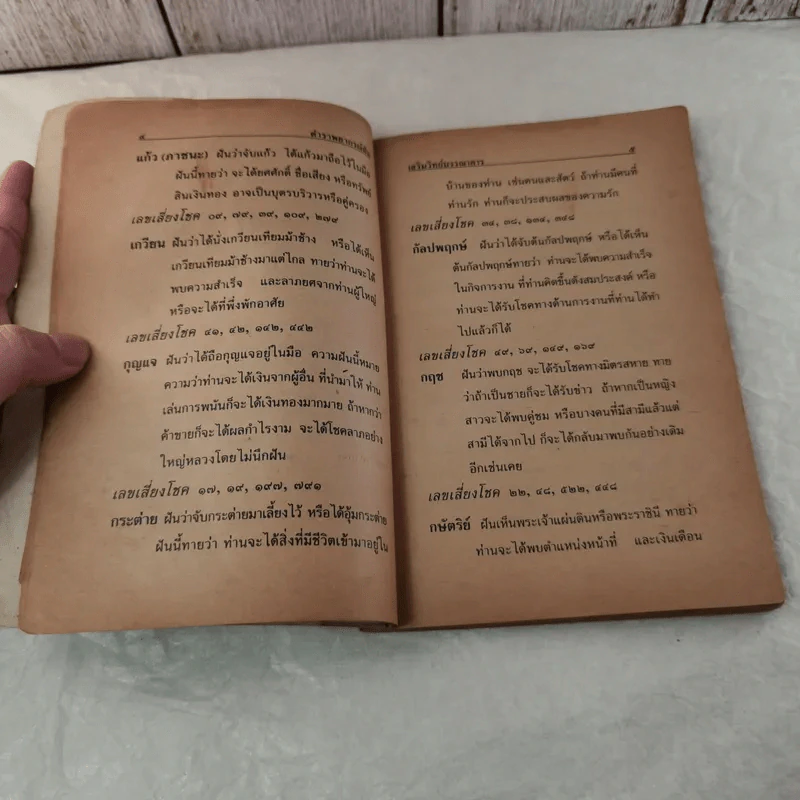 ๔ ตำราพยากรณ์ฝัน
แก้ว (ภาชนะ) ฝันว่าจับแก้ว ได้แก้วมาถือไว้ในมือ
ฝันนี้ทายว่า จะได้ยศศักดิ์ ชื่อเสียง หรือทรัพย์
สินเงินทอง อาจเป็นบุตรบริวารหรือคู่ครอง
เลขเสี่ยงโชค ๐๙, ๗๙, ๓๙, ๑๐๙, ๒๗๙
เกวียน ฝันว่าได้นั่งเกวียนเทียมม้าช้าง หรือได้เห็น
เกวียนเทียมม้าช้างมาแต่ไกล ทายว่าท่านจะได้
พบความสำเร็จ และลาภยศจากท่านผู้ใหญ่
หรือจะได้ที่พึ่งพักอาศัย
เลขเสี่ยงโชค ๔๑, ๔๒, ๑๔๒, ๔๔๒
กุญแจ ฝันว่าได้ถือกุญแจอยู่ในมือ ความฝันนี้หมาย
ความว่าท่านจะได้เงินจากผู้อื่น ที่นำมาให้ ท่าน
เล่นการพนันก็จะได้เงินทองมากมาย ถ้าหากว่า
ค้าขายก็จะได้ผลกำไรงาม จะได้โชคลาภอย่าง
ใหญ่หลวงโดยไม่นึกฝัน
เลขเสี่ยงโชค ๑๗, ๑๙, ๑๙๗, ๗๙๑
กระต่าย ฝันว่าจับกระต่ายมาเลี้ยงไว้ หรือได้อุ้มกระต่าย
ฝันนี้ทายว่า ท่านจะได้สิ่งที่มีชีวิตเข้ามาอยู่ใน
เสริมวิทย์บรรณาคาร ๕
บ้านของท่าน เช่นคนและสัตว์ ถ้าท่านมีคนที่
ท่านรัก ท่านก็จะประสบผลของความรัก
เลขเสี่ยงโชค ๓๔, ๓๘, ๑๓๔, ๓๔๘
กัลปพฤกษ์ ฝันว่าได้จับต้นกัลปพฤกษ์ หรือได้เห็น
ต้นกัลปพฤกษ์ทายว่า ท่านจะได้พบความสำเร็จ
ในกิจการงาน ที่ท่านคิดขึ้นดังสมประสงค์ หรือ
ท่านจะได้รับโชคทางด้านการงานที่ท่านได้ทำ
ไปแล้วก็ได้
เลขเสี่ยงโชค ๔๙, ๖๙, ๑๔๙, ๑๖๙
กฤช ฝันว่าพบกฤช จะได้รับโชคทางมิตรสหาย ทาย
ว่าถ้าเป็นชายก็จะได้รับข่าว ถ้าหากเป็นหญิง
สาวจะได้พบคู่ชม หรือบางคนที่มีสามีแล้วแต่
สามีได้จากไป ก็จะได้กลับมาพบกันอย่างเดิม
อีกเช่นเคย
เลขเสี่ยงโชค ๒๒, ๔๘, ๕๒๒, ๔๔๘
กษัตริย์ ฝันเห็นพระเจ้าแผ่นดินหรือพระราชินี ทายว่า
ท่านจะได้พบตำแหน่งหน้าที่ และเงินเดือน